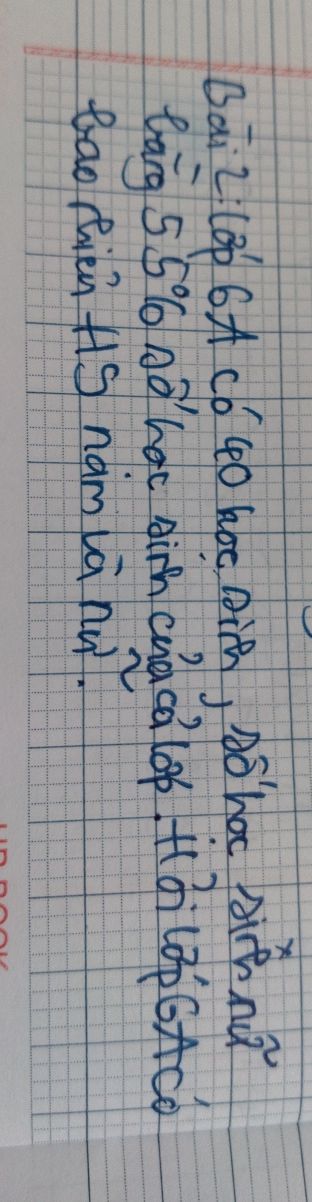 Bài 2: lớp 6A có 40 học sinh, số học sinh nữ
bằng 55% số học sinh của cả lớp. Hỏi lớp 6A có
bao nhiêu HS nam và nữ.